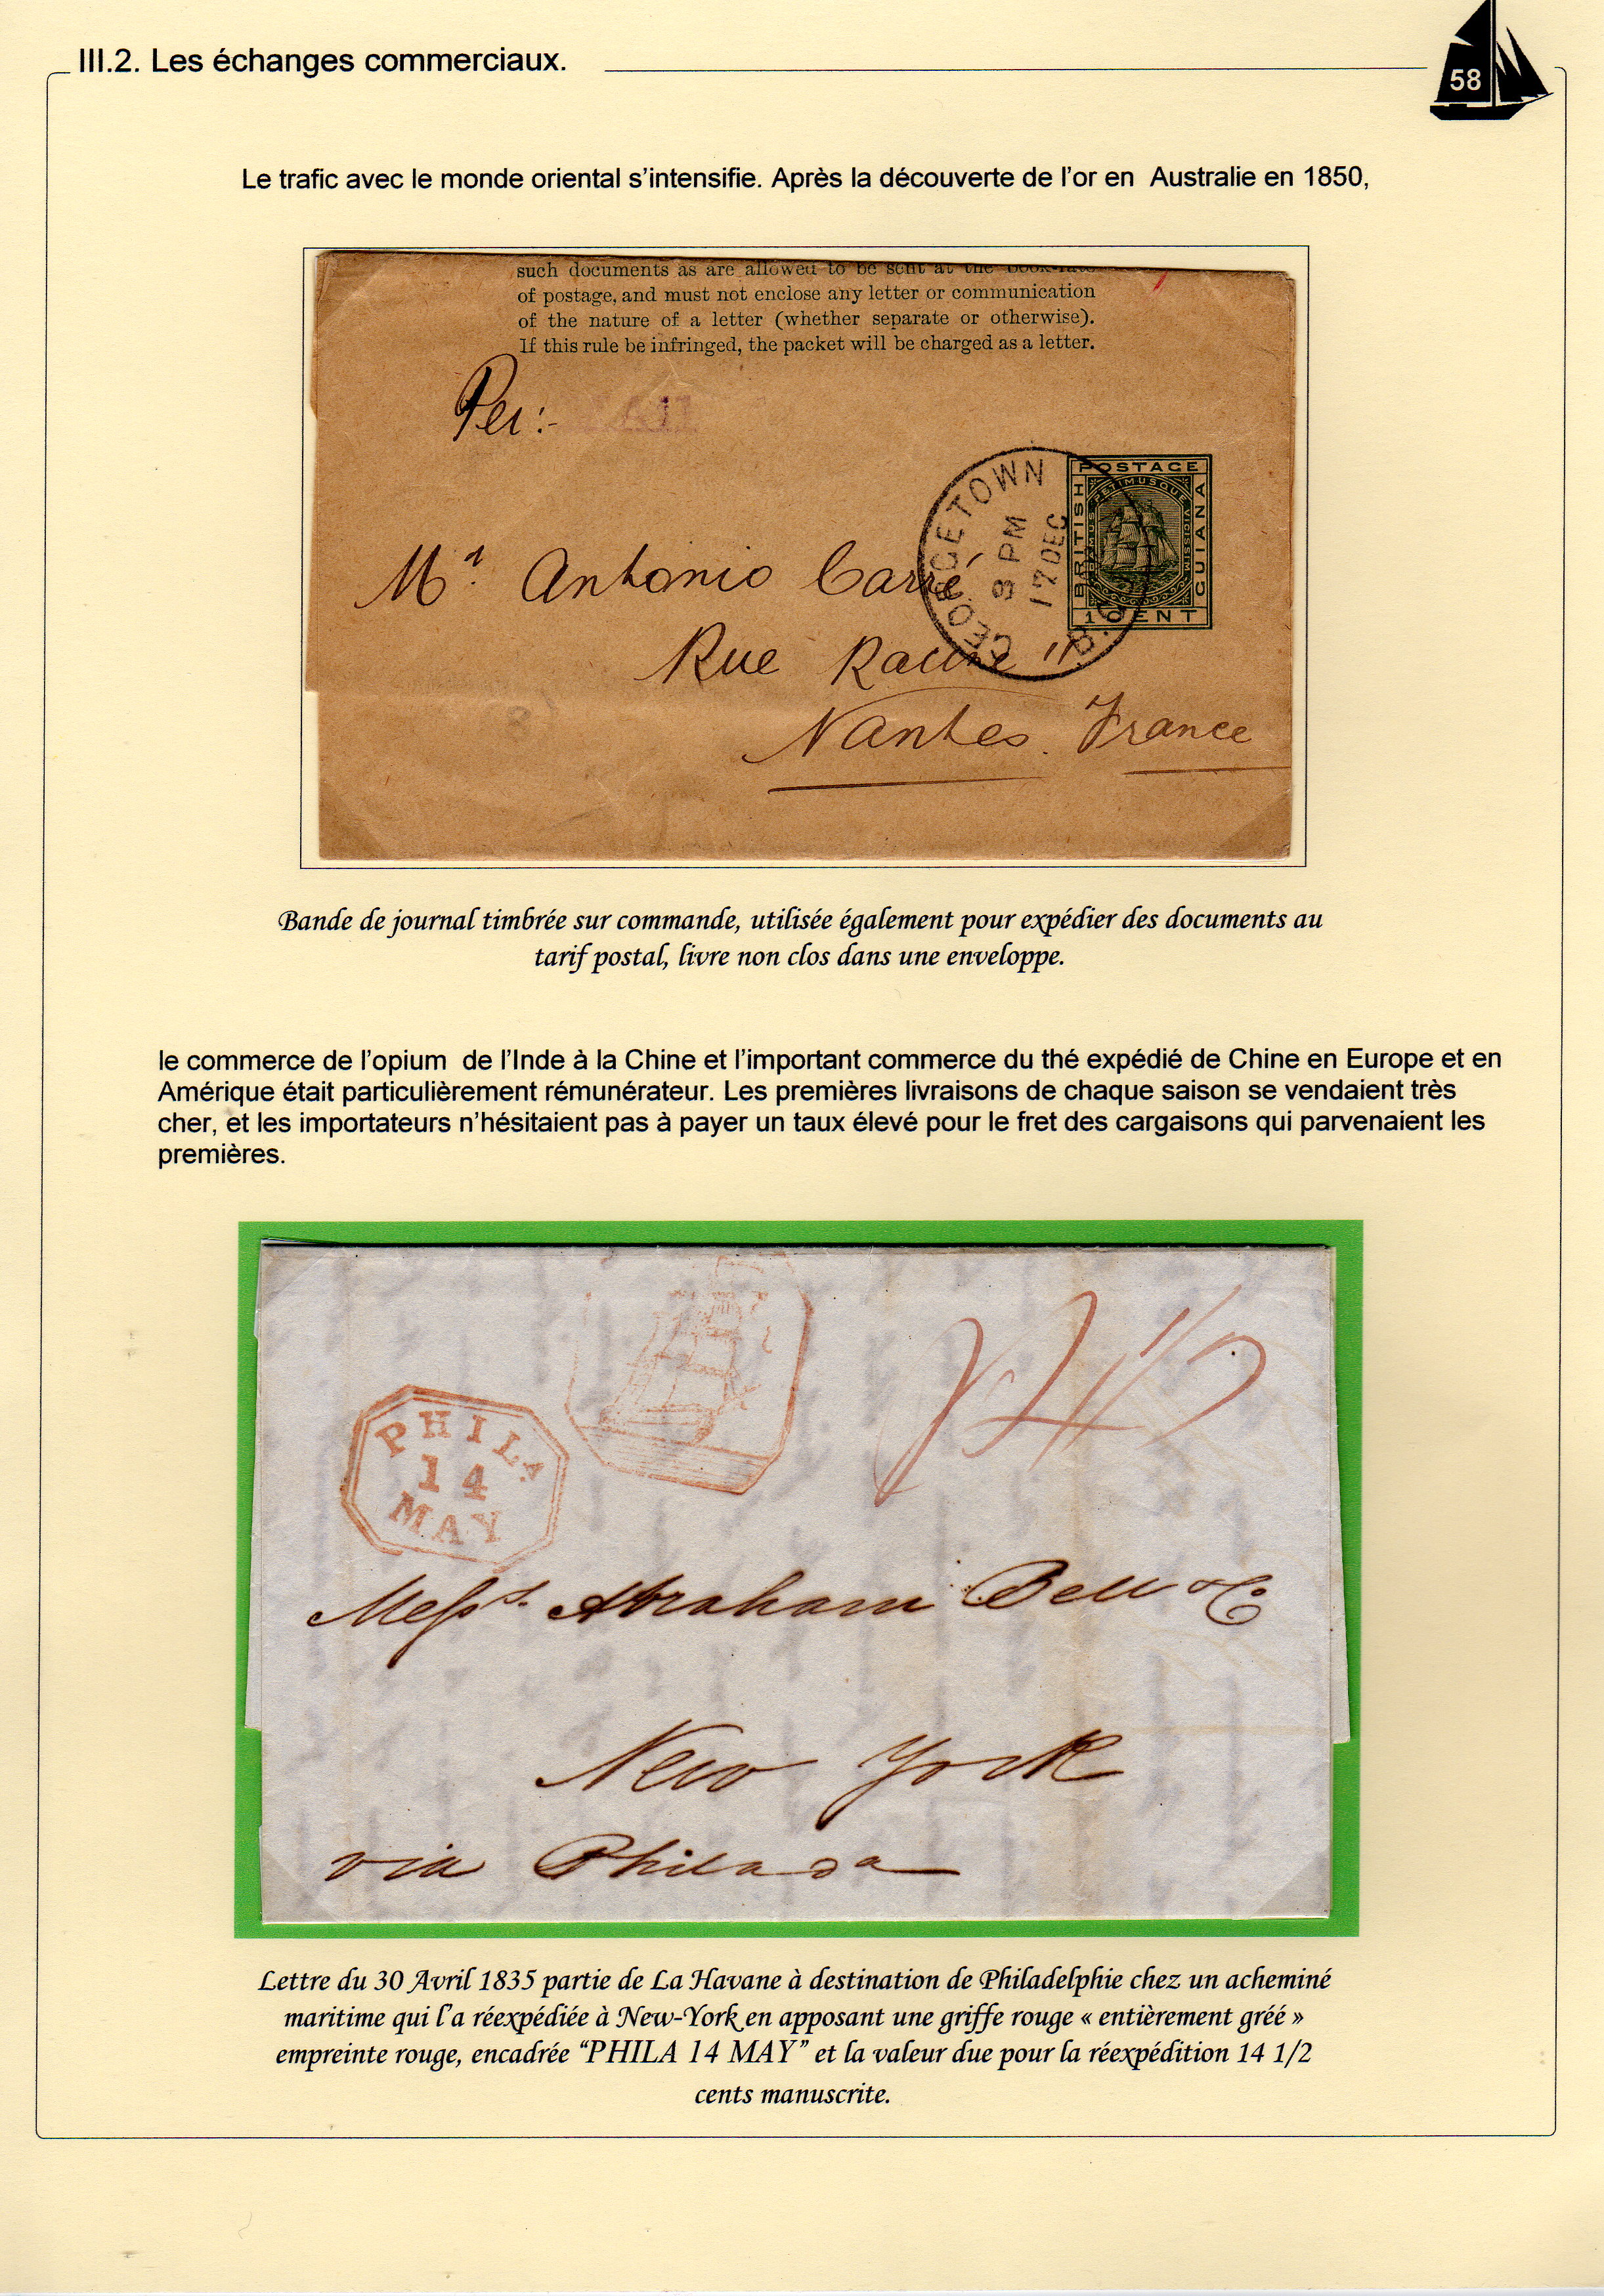 III.2. Les échanges commerciaux.
58
Le trafic avec le monde oriental s'intensifie. Après la découverte de l'or en Australie en 1850,
such documents as are allowed to be sent at the book-rate
of postage, and must not enclose any letter or communication
of the nature of a letter (whether separate or otherwise).
If this rule be infringed, the packet will be charged as a letter.
Per:-
GEORGETOWN
3 PM
17 DEC
POSTAGE
BRITISH
GUIANA
DAMUS PETIMUSQUE VICISSIM
1 CENT
Mr. Antonio Carré
Rue Racine 11
Nantes. France
Bande de journal timbrée sur commande, utilisée également pour expédier des documents au
tarif postal, livre non clos dans une enveloppe.
le commerce de l'opium de l'Inde à la Chine et l'important commerce du thé expédié de Chine en Europe et en
Amérique était particulièrement rémunérateur. Les premières livraisons de chaque saison se vendaient très
cher, et les importateurs n'hésitaient pas à payer un taux élevé pour le fret des cargaisons qui parvenaient les
premières.
PHILA
14
MAY
14 1/2
Messrs. Abraham Bell & Co
New York
via Philada
Lettre du 30 Avril 1835 partie de La Havane à destination de Philadelphie chez un acheminé
maritime qui l'a réexpédiée à New-York en apposant une griffe rouge « entièrement gréé »
empreinte rouge, encadrée "PHILA 14 MAY" et la valeur due pour la réexpédition 14 1/2
cents manuscrite.